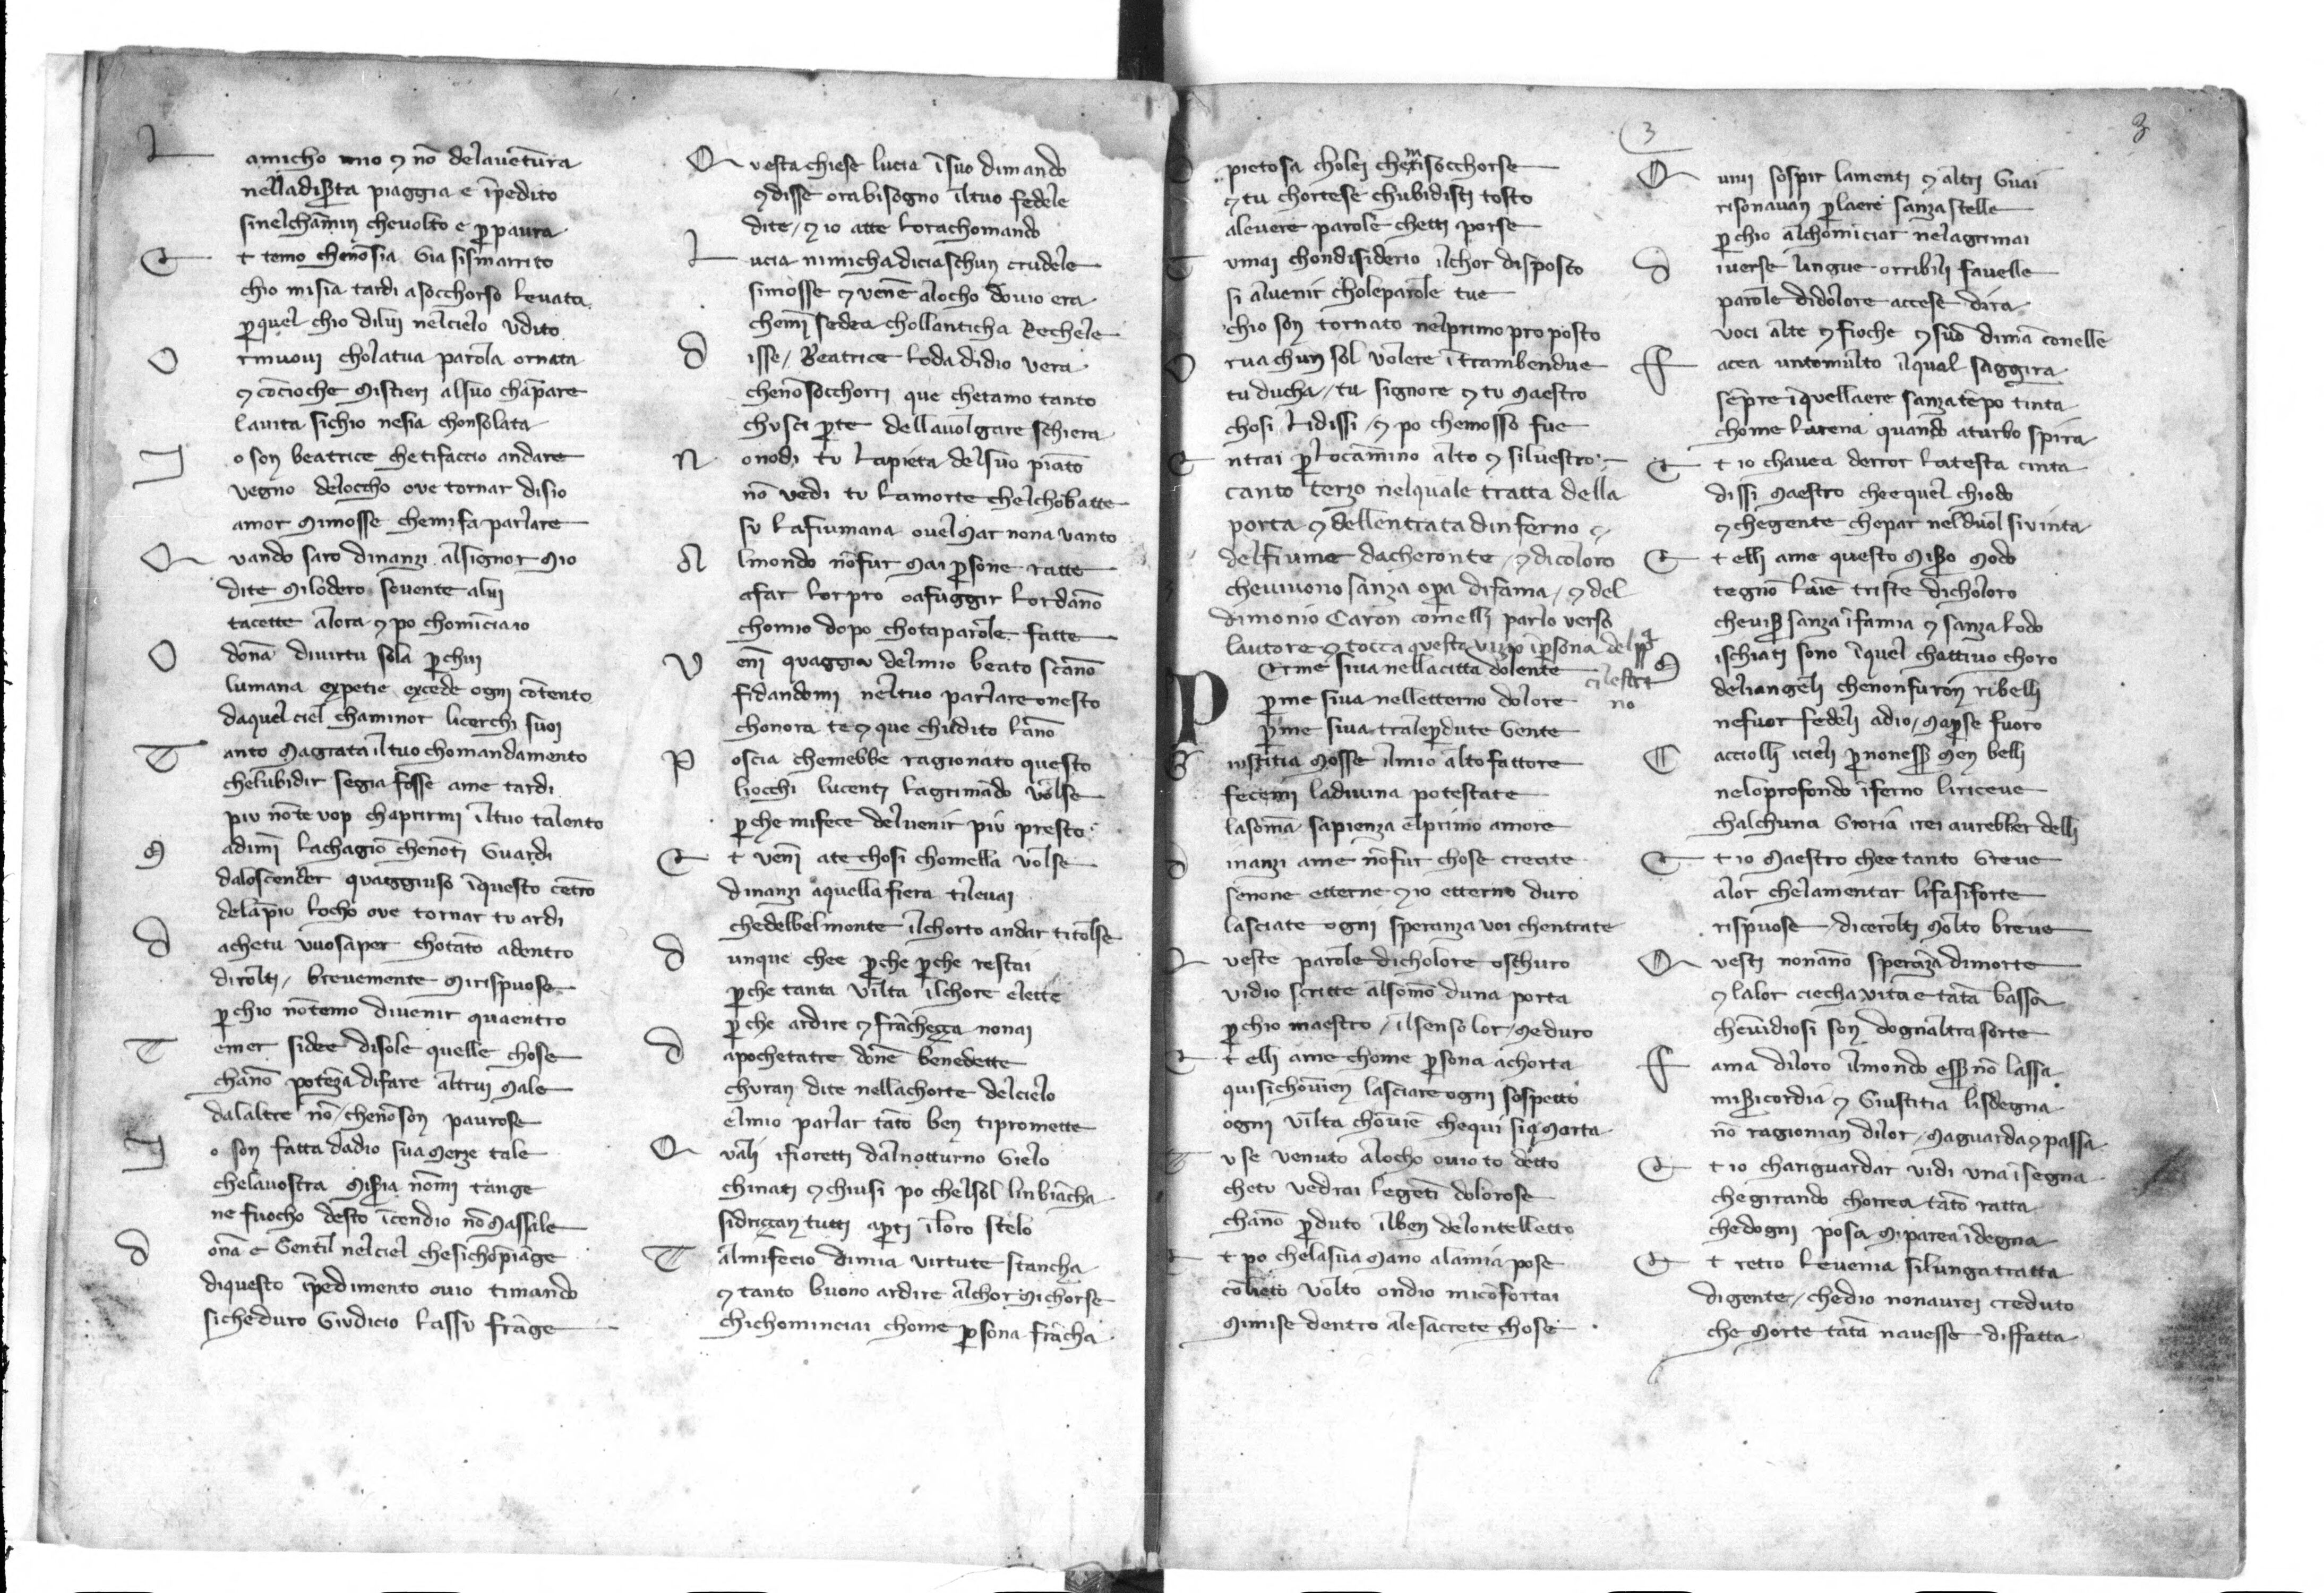 L amicho mio ⁊ nō delauētura
nelladiꝑta piaggia e īpedito
sinelchamin cheuolto e ꝑpaura
E t temo chenōsia Gia sismarrito
chio misia tardi asocchorso leuata
ꝑquel chio dilui nelcielo vdito
O rmuoui cholatua parola ornata
⁊ cōcioche Mistieri alsuo chāpare
lauita sichio nesia chonsolata
I o son beatrice chetifaccio andare
vegno delocho ove tornar disio
amor Mimosse chemifa parlare
Q vando saro dinanzi alsignor Mio
dite Milodero souente alui
tacette alora ⁊ po chominciaio
O dōna divirtu sola ꝑchui
lumana expetie excede ogni cōtento
daquel ciel chaminor licerchi suoi
T anto Magrata iltuo chomandamento
chelubidir segia fosse ame tardi
piu nōte uop chaprirmi iltuo talento
M adimi lachagiō chenōti Guardi
daloscender quaggiuso īquesto cētro
delāpio locho ove tornar tu ardi
D achetu vuosaper chotāto adentro
dirolti / brevemente Mirispuose
ꝑchio nōtemo divenir quaentro
T emer sidee disole quelle chose
chanō potēza difare altrui Male
dalaltre nō / chenōson paurose
I o son fatta dadio sua Merze tale
chelauostra Miꝑia nōmi tange
ne fuocho desto īcendio nō Massale
D onā e Gentil nelciel chesichōpiāge
diquesto īpedimento ouio timando
sicheduro Giudicio lassu frāge
Q vesta chiese lucia īsuo dimando
⁊disse orabisogno iltuo fedele
dite / ⁊ io atte lorachomando
L ucia nimicha diciaschun crudele
simosse ⁊ venē alocho dovio era
chemi sedea chollanticha Rechele
D isse / Beatrice loda didio vera
chenōsocchorri que chetamo tanto
chusci ꝑte dellauolgare schiera
N onodi tu lapieta delsuo piāto
nō vedi tu lamorte chelchōbatte
su lafiumana ouelMar nona vanto
A lmondo nōfur Mai ꝑsone ratte
afar lorpro oafuggir lordāno
chomio dopo chotaparole fatte
V eni quaggiu delmio beato scāno
fidandomi neltuo parlare onesto
chonora te ⁊ que chudito lāno
P oscia chemebbe ragionato questo
liocchi lucenti lagrimādo volse
ꝑche mifece deluenir piu presto
E t veni ate chosi chomella volse
dinanzi aquella fiera tileuai
chedelbelmonte ilchorto andar titolse
D unque chee ꝑche ꝑche restai
ꝑche tanta vilta ilchore elette
ꝑche ardire ⁊ frāchezza nonai
D apochetatre dōne benedette
churan dite nellachorte delcielo
elmio parlar tāto ben tipromette
Q vali ifioretti dalnotturno Gielo
chinati ⁊ chiusi po chelsol linbiācha
sidrizzan tutti aꝑti īloro stelo
T almifecio dimia virtute stancha
⁊ tanto buono ardire alchor Michorse
chichominciai chome ꝑsona frācha
3
3
O pietosa cholei chemisocchorse
⁊ tu chortese chubidisti tosto
aleuere parole chetti porse
T umai chondisiderio ilchor disposto
si aluenir choleparole tue
chio son tornato nelprimo proposto
O rua chun sol volere ītrambendue
tu ducha / tu signore ⁊ tu Maestro
chosi lidissi / ⁊ po chemosso fue
E ntrai ꝑlocāmino alto ⁊ siluestro
canto terzo nelquale tratta della
porta ⁊ dellentrata dinferno ⁊
delfiume dacheronte / ⁊ dicoloro
cheuiuono sanza oꝑa difama / ⁊ del
dimonio Caron comelli parlo verso
lautore ⁊ tocca questo vizio īꝑsona delpp
cilestri
no
P Erme siua nellacitta dolente
ꝑme siua nelletterno dolore
ꝑme siua tralepdute Gente
G iustitia Mosse ilmio alto fattore
fecemi ladiuina potestate
lasoma sapienza elprimo amore
D inanzi ame nōfur chose create
senone etterne ⁊ io etterno duro
lasciate ogni speranza voi chentrate
Q veste parole dicholore oschuro
vidio scritte alsomo duna porta
ꝑchio maestro / ilsenso lor Meduro
E t elli ame chome ꝑsona achorta
quisichouien lasciare ogni sospetto
ogni vilta chouiē chequi sia Morta
T v se venuto alocho ouio to detto
chetu vedrai legēti dolorose
chanō ꝑduto ilben delontelletto
E t po chelasua Mano alamia pose
cōlieto volto ondio micōfortai
Mimise dentro alesacrete chose
Q uiui sospir lamenti ⁊ altri Guai
risonauan ꝑlaere sanza stelle
ꝑchio alchomiciar nelagrimai
D iuerse lingue orribili fauelle
parole didolore accese dira
voci alte ⁊ fioche ⁊ suō dimā conelle
F acea untomulto ilqual saggira
sēpre īquellaere sanzatēpo tinta
chome larena quando aturbo spira
E t io chauea derror latesta cinta
dissi Maestro cheequel chiodo
⁊ chegente chepar nelduol siuinta
E t elli ame questo Miꝑo Modo
tegnō laīe triste dicholoro
cheuiꝑ sanza īfamia ⁊ sanza lodo
M ischiati sono īquel chattiuo choro
deliangeli chenonfuron ribelli
nefuor fedeli adio / Maꝑse fuoro
C acciolli icieli ꝑnoneſſꝑ Men belli
neloprofondo īferno liriceue
chalchuna Groria irei aurebber delli
E t io Maestro chee tanto Greue
alor chelamentar lifasiforte
rispuose / dicerolti Molto breue
Q vesti nonāno sperāza dimorte
⁊ lalor ciecha vita e tāta bassa
cheuidiosi son dognaltra sorte
F ama diloro ilmondo essꝑ nō lassa
miꝑicordia ⁊ Giustitia lisdegna
nō ragionian dilor / Maguarda ⁊ passa
E t io chariguardar vidi vna īsegna
chegirando chorrea tāto ratta
chedogni posa Miparea īdegna
E t retro leuenia silunga tratta
digente / chedio nonaurei creduto
che Morte tāta nauesse diffatta